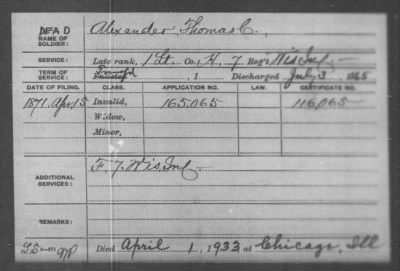 DEAD
NAME OF SOLDIER: Alexander Thomas C.,
SERVICE: Late rank, 1 Lt. Co., H, 7 Reg't Wis Inf.
TERM OF SERVICE: , 1 Discharged July 3 1865
DATE OF FILING. CLASS. APPLICATION NO. LAW. CERTIFICATE NO.
1871. Apr. 15 Invalid, 165,065 116,065
Widow,
Minor,
ADDITIONAL SERVICES: F. 7 Wis Inf.
REMARKS:
Died April 1, 1933 at Chicago, Ill